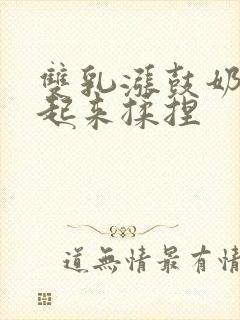 雙乳漲鼓奶
起来揉捏
道無情最有情